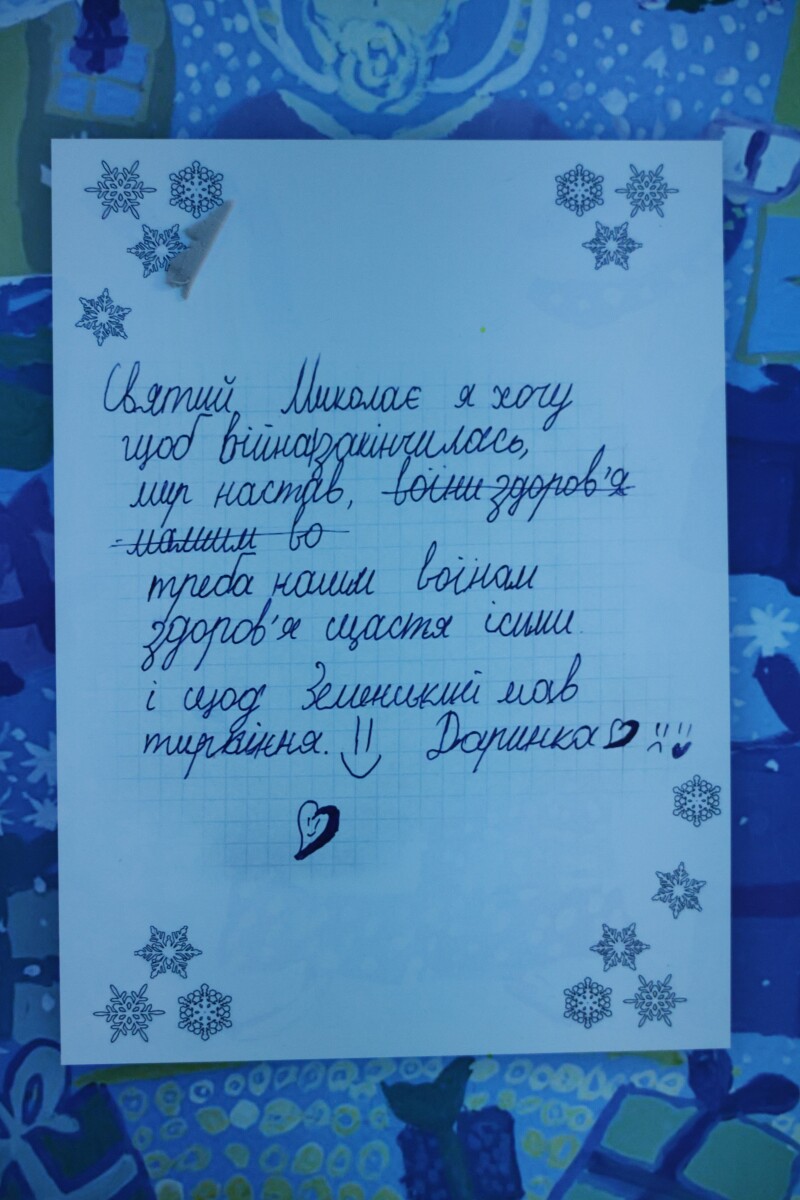 Святий Миколає я хочу
щоб війна закінчилась,
мир настав, воїни здоров'я
нашим во
треба нашим воїнам
здоров'я щастя і сили
і щоб Зеленський мав
тирпіння. Даринка